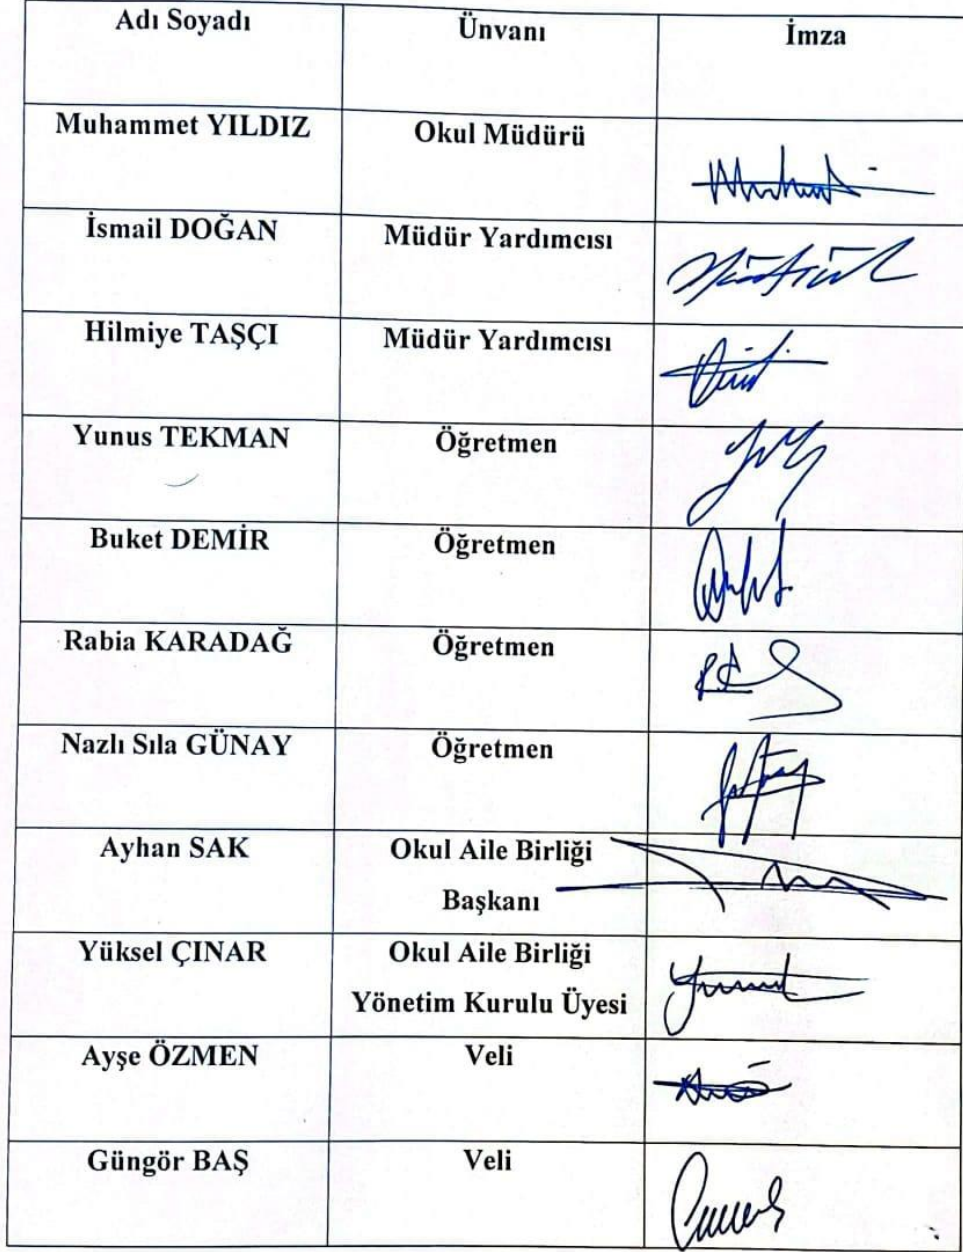 Adı Soyadı Ünvanı İmza
Muhammet YILDIZ Okul Müdürü
İsmail DOĞAN Müdür Yardımcısı
Hilmiye TAŞÇI Müdür Yardımcısı
Yunus TEKMAN Öğretmen
Buket DEMİR Öğretmen
Rabia KARADAĞ Öğretmen
Nazlı Sıla GÜNAY Öğretmen
Ayhan SAK Okul Aile Birliği
Başkanı
Yüksel ÇINAR Okul Aile Birliği
Yönetim Kurulu Üyesi
Ayşe ÖZMEN Veli
Güngör BAŞ Veli